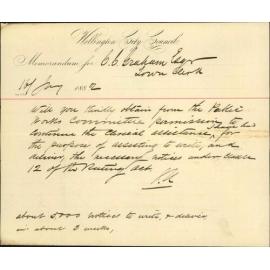 Wellington City Council
Memorandum for C. C. Graham Esqr
Town Clerk
188 2
Will you kindly obtain from the Public
Works Committee permission to
continue the clerical assistance, for
the purpose of assisting to write, and
deliver, the necessary notices under clause
12 of the Rating Act
about 5000 notices to write, & deliver
in about 3 weeks,